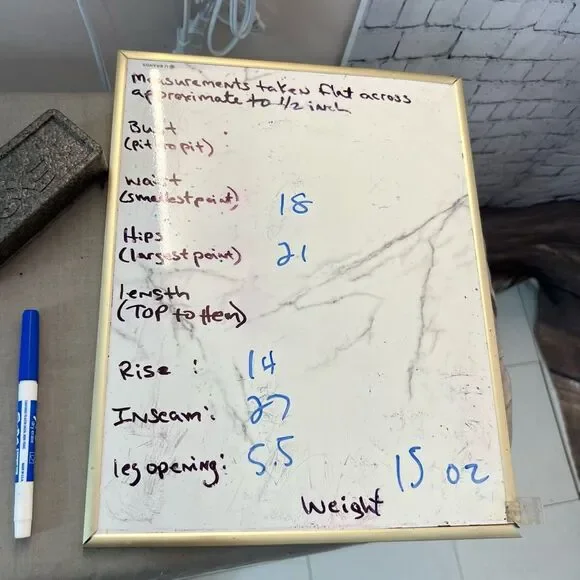 measurements taken flat across
approximate to 1/2 inch
Bust :
(pit to pit)
waist
(smallest point) 18
Hips
(largest point) 21
length
(TOP to Hem)
Rise : 14
Inseam: 27
leg opening: 5.5
15 oz
Weight